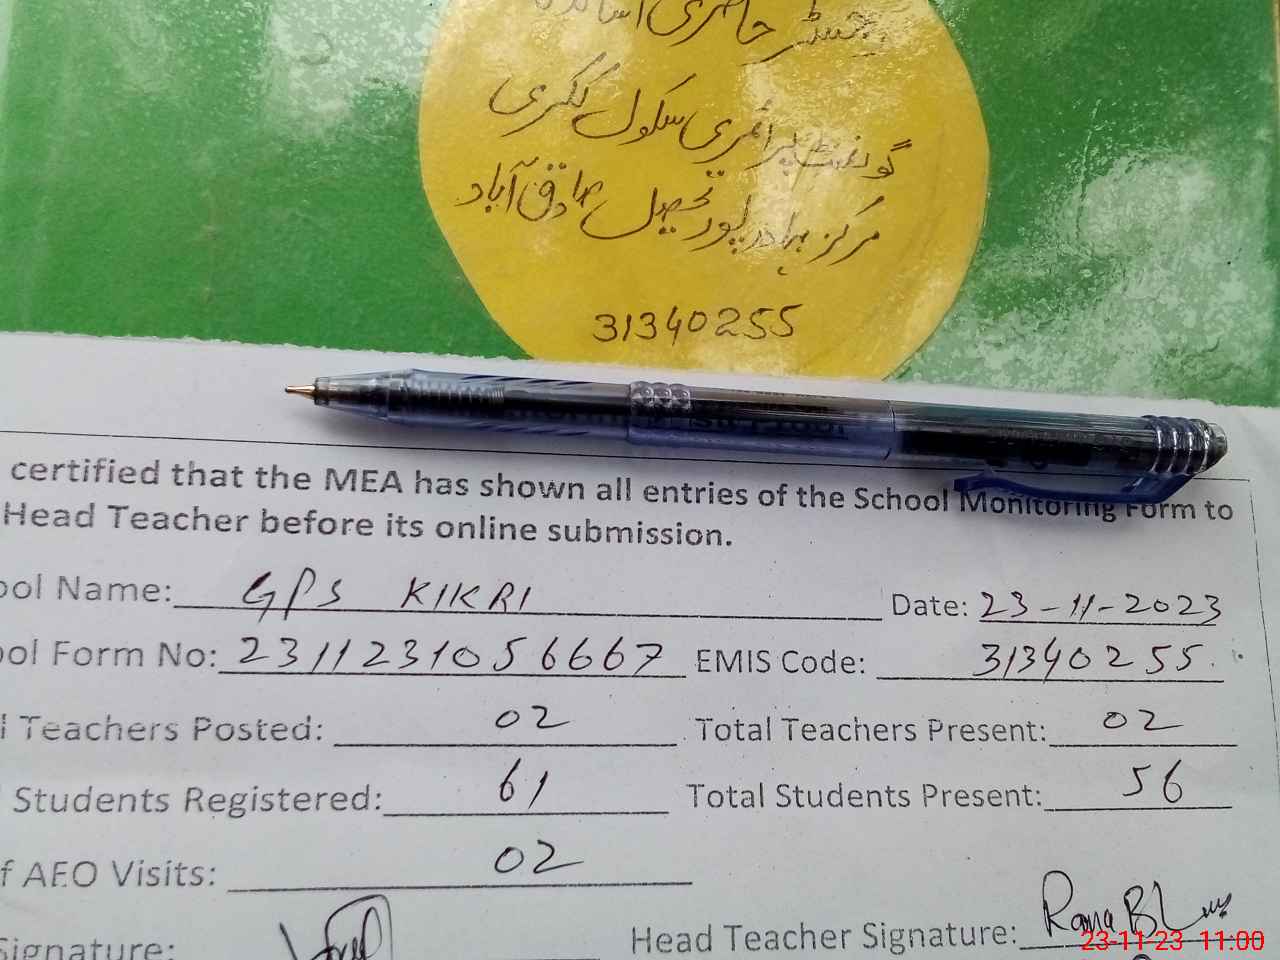 رجسٹر حاضری اساتذہ
گورنمنٹ پرائمری سکول ککری
مرکز بہادر پور تحصیل صادق آباد
31340255
certified that the MEA has shown all entries of the School Monitoring Form to
Head Teacher before its online submission.
ool Name: GPS KIKRI Date: 23-11-2023
ool Form No: 2311231056667 EMIS Code: 31340255.
l Teachers Posted: 02 Total Teachers Present: 02
Students Registered: 61 Total Students Present: 56
f AEO Visits: 02
Signature: Head Teacher Signature: Rana
23-11-23 11:00